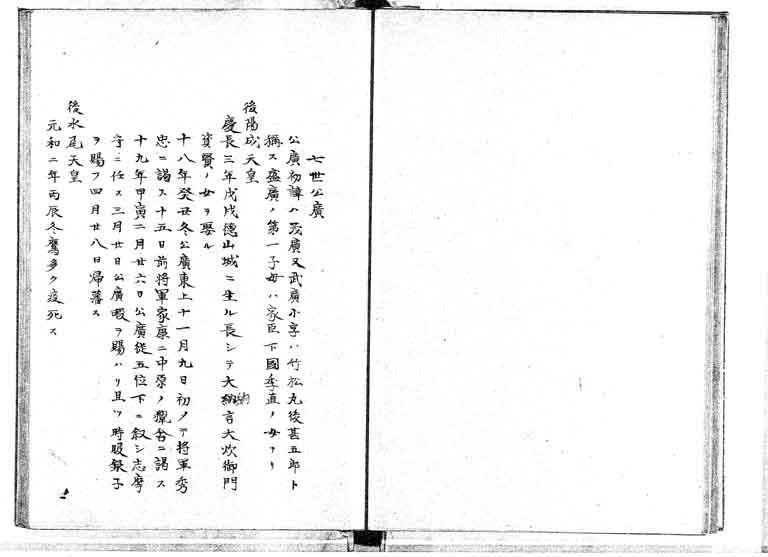 七世公廣
公廣初諱ハ茂廣又武廣小字ハ竹松丸後甚五郎ト
稱ス盛廣ノ第一子母ハ家臣下國季直ノ女ナリ
後陽成天皇
慶長三年戊戌德山城ニ生ル長シテ大納言大炊御門
資賢ノ女ヲ娶ル
十八年癸丑冬公廣東上十一月九日初メテ將軍秀
忠ニ謁ス十五日前將軍家康ニ中原ノ舍ニ謁ス
十九年甲寅二月廿六日公廣從五位下ニ叙シ志摩
守ニ任ス三月廿日公廣暇ヲ賜ハリ且ツ時服銀子
ヲ賜フ四月廿八日帰藩ス
後水尾天皇
元和二年丙辰冬鷹多ク疫死ス